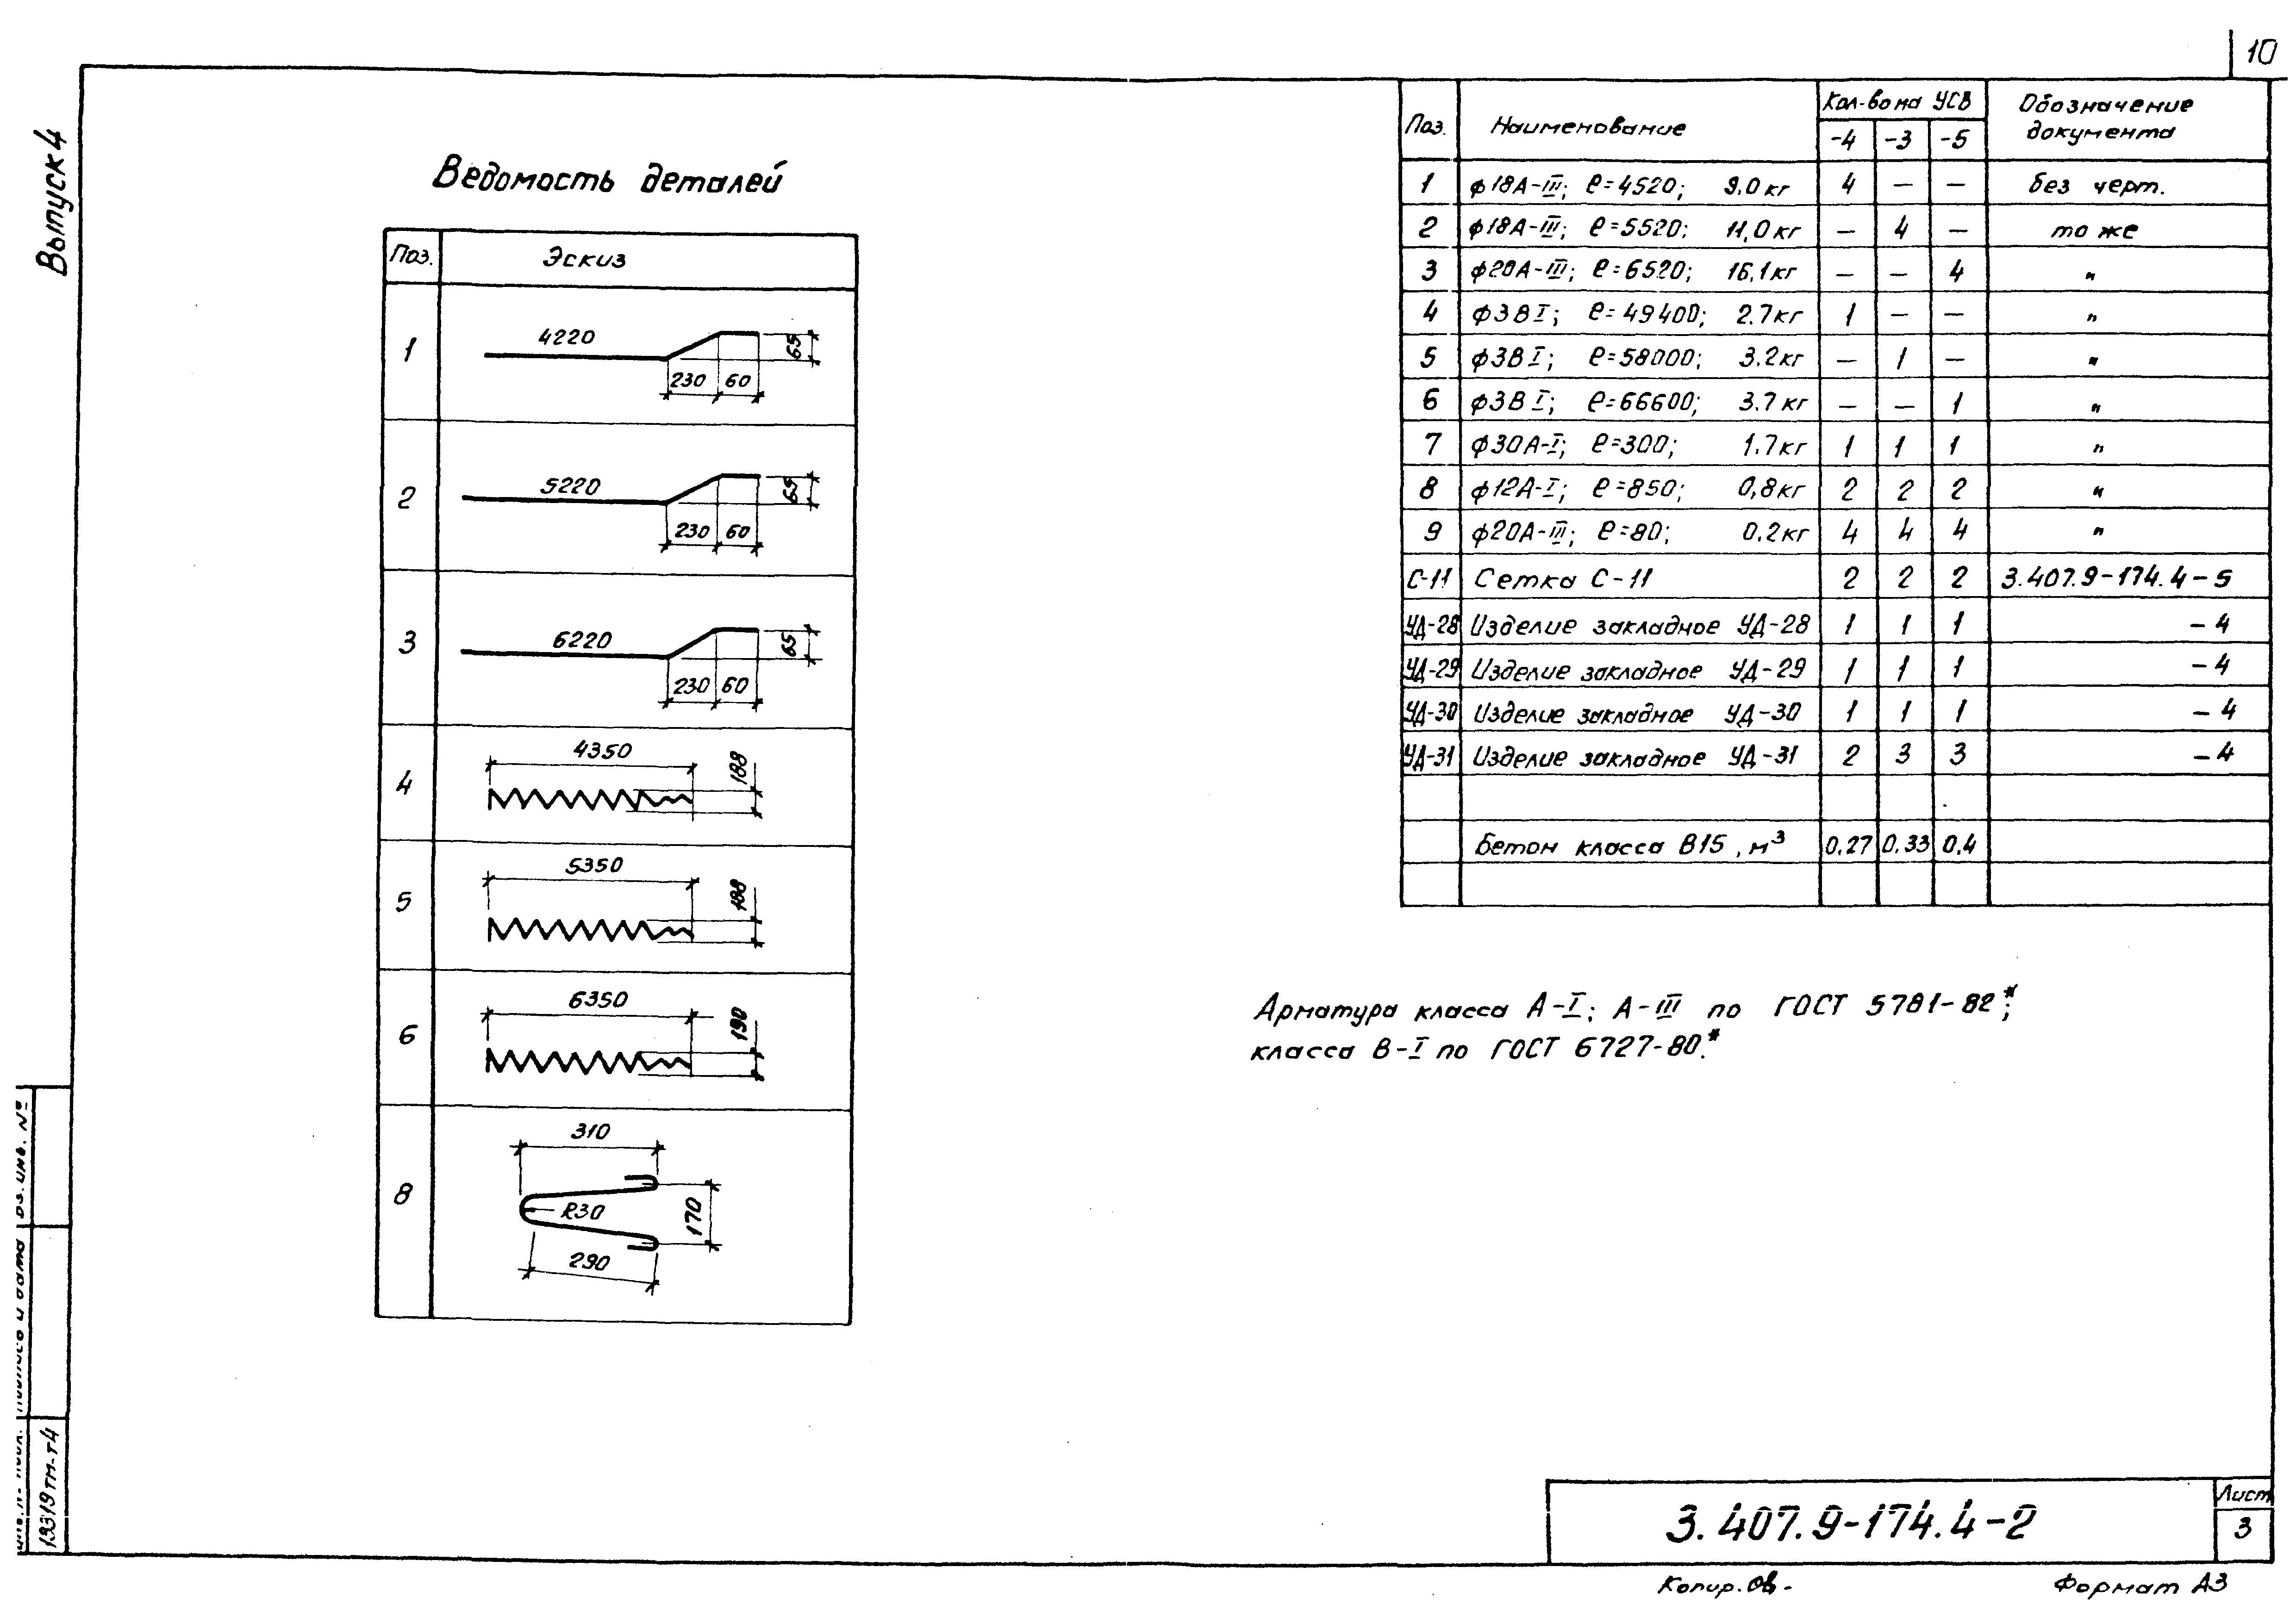 10
Выпуск 4
Ведомость деталей
Поз. Эскиз
1 4220 230 60 65
2 5220 230 60 65
3 6220 230 60 65
4 4350 188
5 5350 188
6 6350 190
8 310 R30 170 290
Поз. Наименование Кол-во на УСВ Обозначение документа
-4 -3 -5
1 ф18А-III; ℓ=4520; 9,0кг 4 — — без черт.
2 ф18А-III; ℓ=5520; 11,0кг — 4 — то же
3 ф20А-III; ℓ=6520; 16,1кг — — 4 "
4 ф3ВI; ℓ=49400; 2.7кг 1 — — "
5 ф3ВI; ℓ=58000; 3.2кг — 1 — "
6 ф3ВI; ℓ=66600; 3.7кг — — 1 "
7 ф30А-I; ℓ=300; 1.7кг 1 1 1 "
8 ф12А-I; ℓ=850; 0,8кг 2 2 2 "
9 ф20А-III; ℓ=80; 0.2кг 4 4 4 "
С-11 Сетка С-11 2 2 2 3.407.9-174.4-5
УД-28 Изделие закладное УД-28 1 1 1 -4
УД-29 Изделие закладное УД-29 1 1 1 -4
УД-30 Изделие закладное УД-30 1 1 1 -4
УД-31 Изделие закладное УД-31 2 3 3 -4
Бетон класса В15, м³ 0,27 0,33 0,4
Арматура класса А-I; А-III по ГОСТ 5781-82*;
класса В-I по ГОСТ 6727-80.*
Вз. инв. №
Подпись и дата
Инв. № подл.
19319тм-т4
3.407.9-174.4-2
Лист
3
Копир.
Формат А3